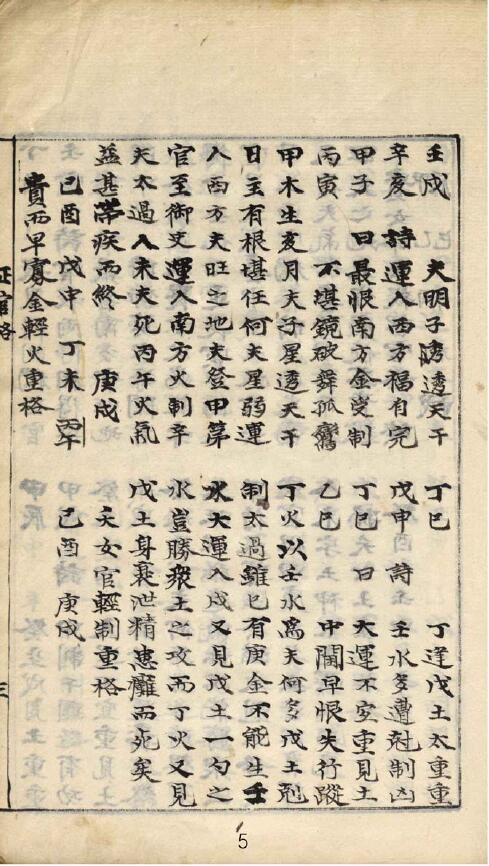 壬戌 夫明子透透天干
辛亥 詩 運入西方福自完
甲子 曰 最恨南方金受制
丙寅 不堪鏡破舞孤鸞
甲木生亥月夫子星透天干
日主有根堪任何夫星弱運
入西方夫旺之地夫登甲第
官至御史運入南方火制辛
夫太過入未夫死丙午火氣
益甚帶疾而終 庚戌
己酉 戊申 丁未 丙午
貴而早寡金輕火重格
丁巳 丁逢戊土太重重
戊申 詩 壬水多遭尅制凶
丁巳 曰 大運不宜重見土
乙巳 中閨早恨失行蹤
丁火以壬水爲夫何多戊土剋
制太過雖巳有庚金不能生壬
水大運入戌又見戊土一勺之
水豈勝衆土之攻而丁火又見
戊土身衰泄精患癰而死矣
夭女官輕制重格
己酉 庚戌
正官格
三
5